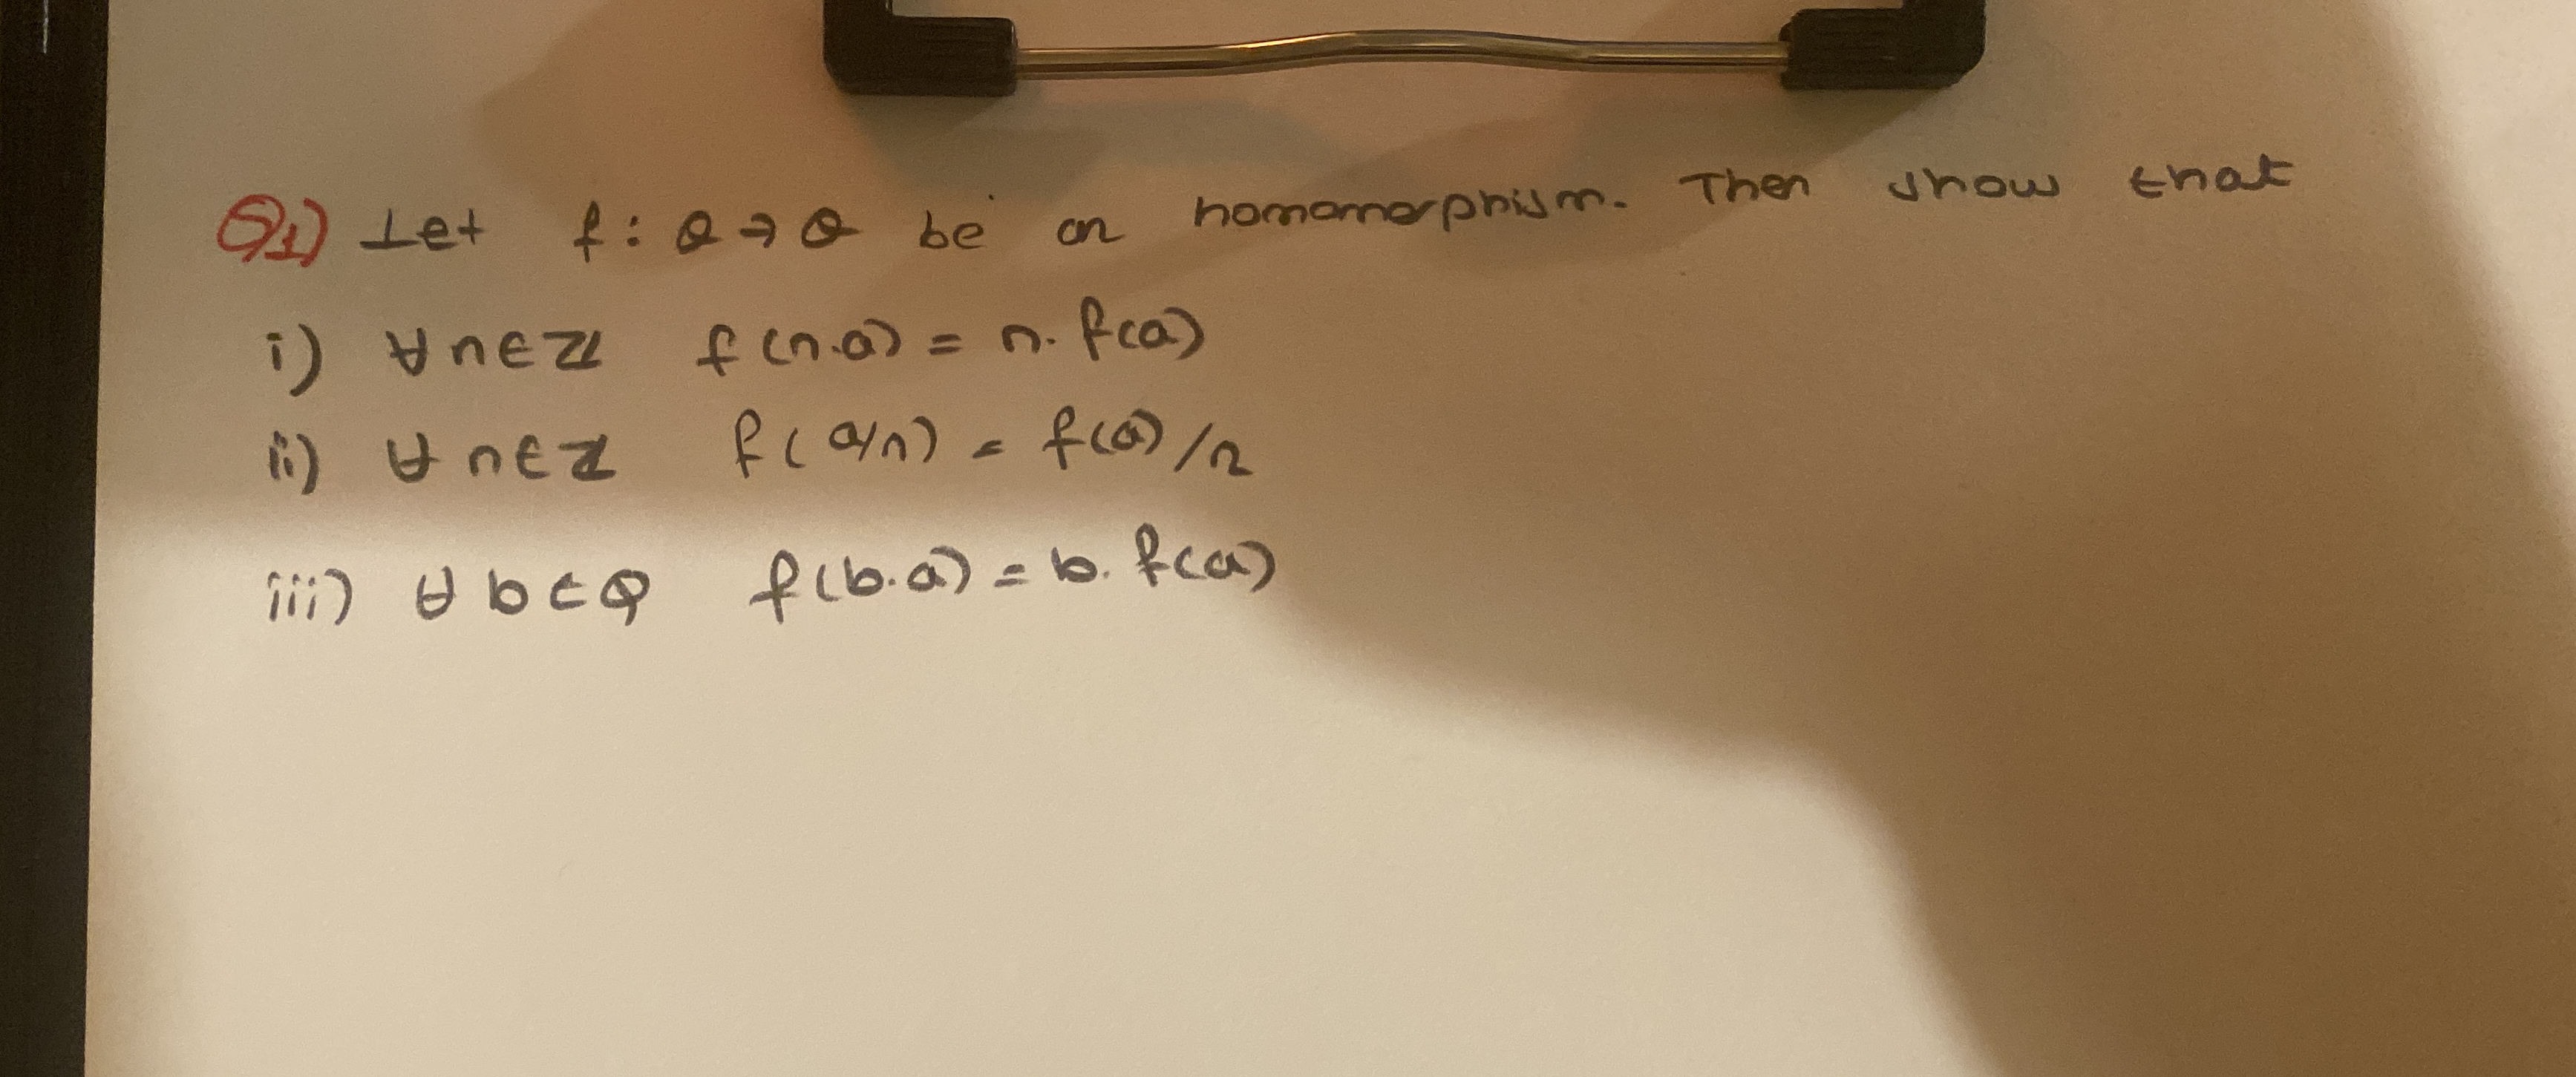 Q1) Let f: Q → Q be an homomorphism. Then show that
i) ∀n∈ℤ f(n.a) = n. f(a)
ii) ∀ n∈ℤ f(a/n) = f(a)/n
iii) ∀ b∈Q f(b.a) = b. f(a)